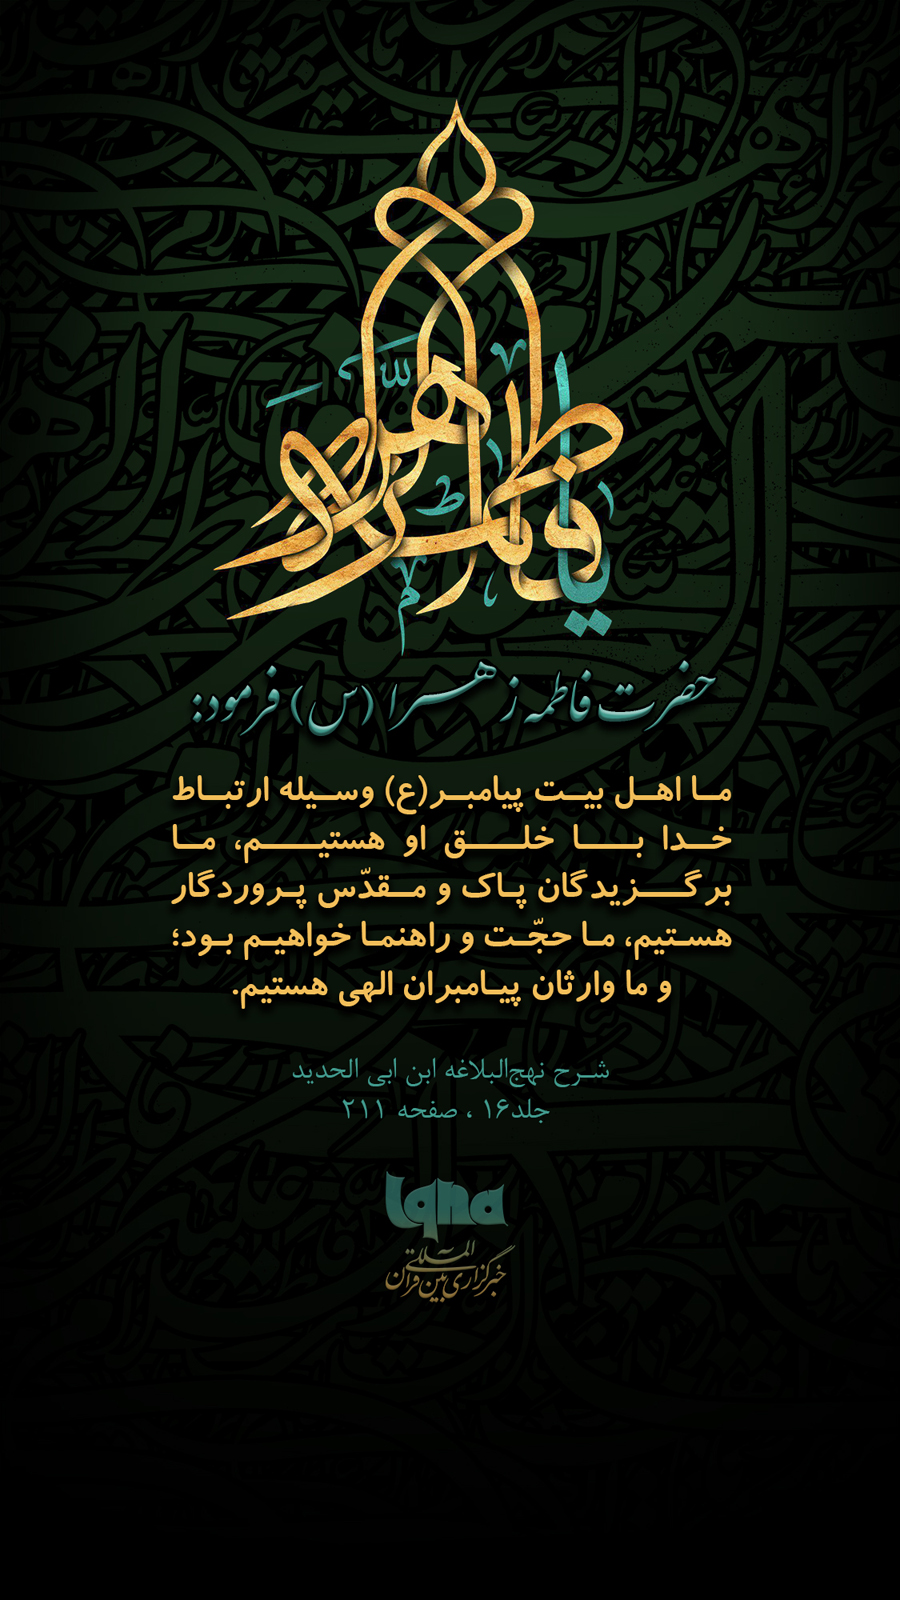 یا فاطمة الزهراء
حضرت فاطمه زهرا (س) فرمود:
ما اهل بیت پیامبر(ع) وسیله ارتباط
خدا با خلق او هستیم، ما
برگزیدگان پاک و مقدّس پروردگار
هستیم، ما حجّت و راهنما خواهیم بود؛
و ما وارثان پیامبران الهی هستیم.
شرح نهج‌البلاغه ابن ابی الحدید
جلد۱۶ ، صفحه ۲۱۱
Iqna
خبرگزاری بین المللی قرآن